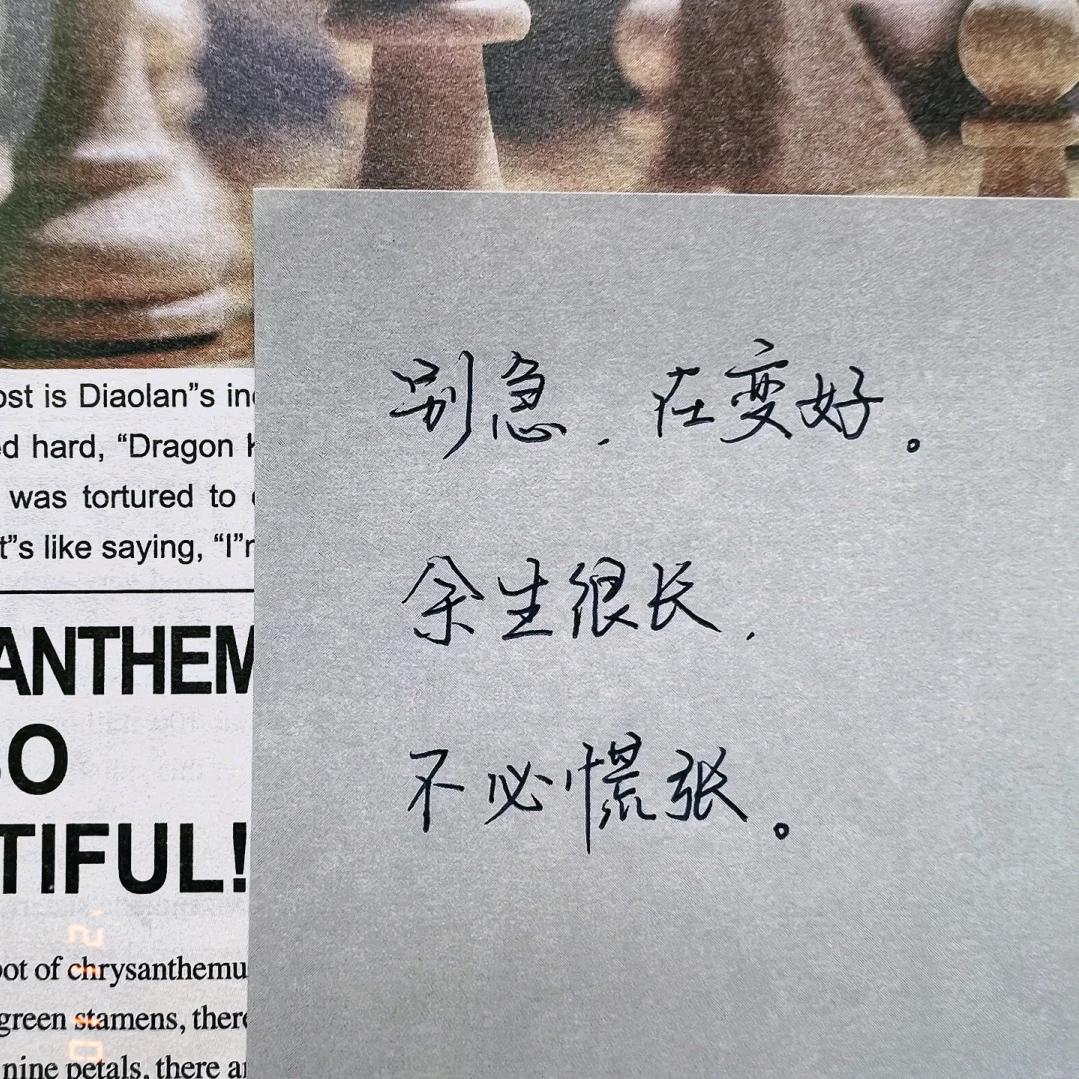 ost is Diaolan”s in
ed hard, “Dragon
was tortured to
t”s like saying, “I”
ANTHEM
SO
TIFUL!
pot of chrysanthemu
green stamens, there
nine petals, there a
别急.在变好。
余生很长.
不必慌张。